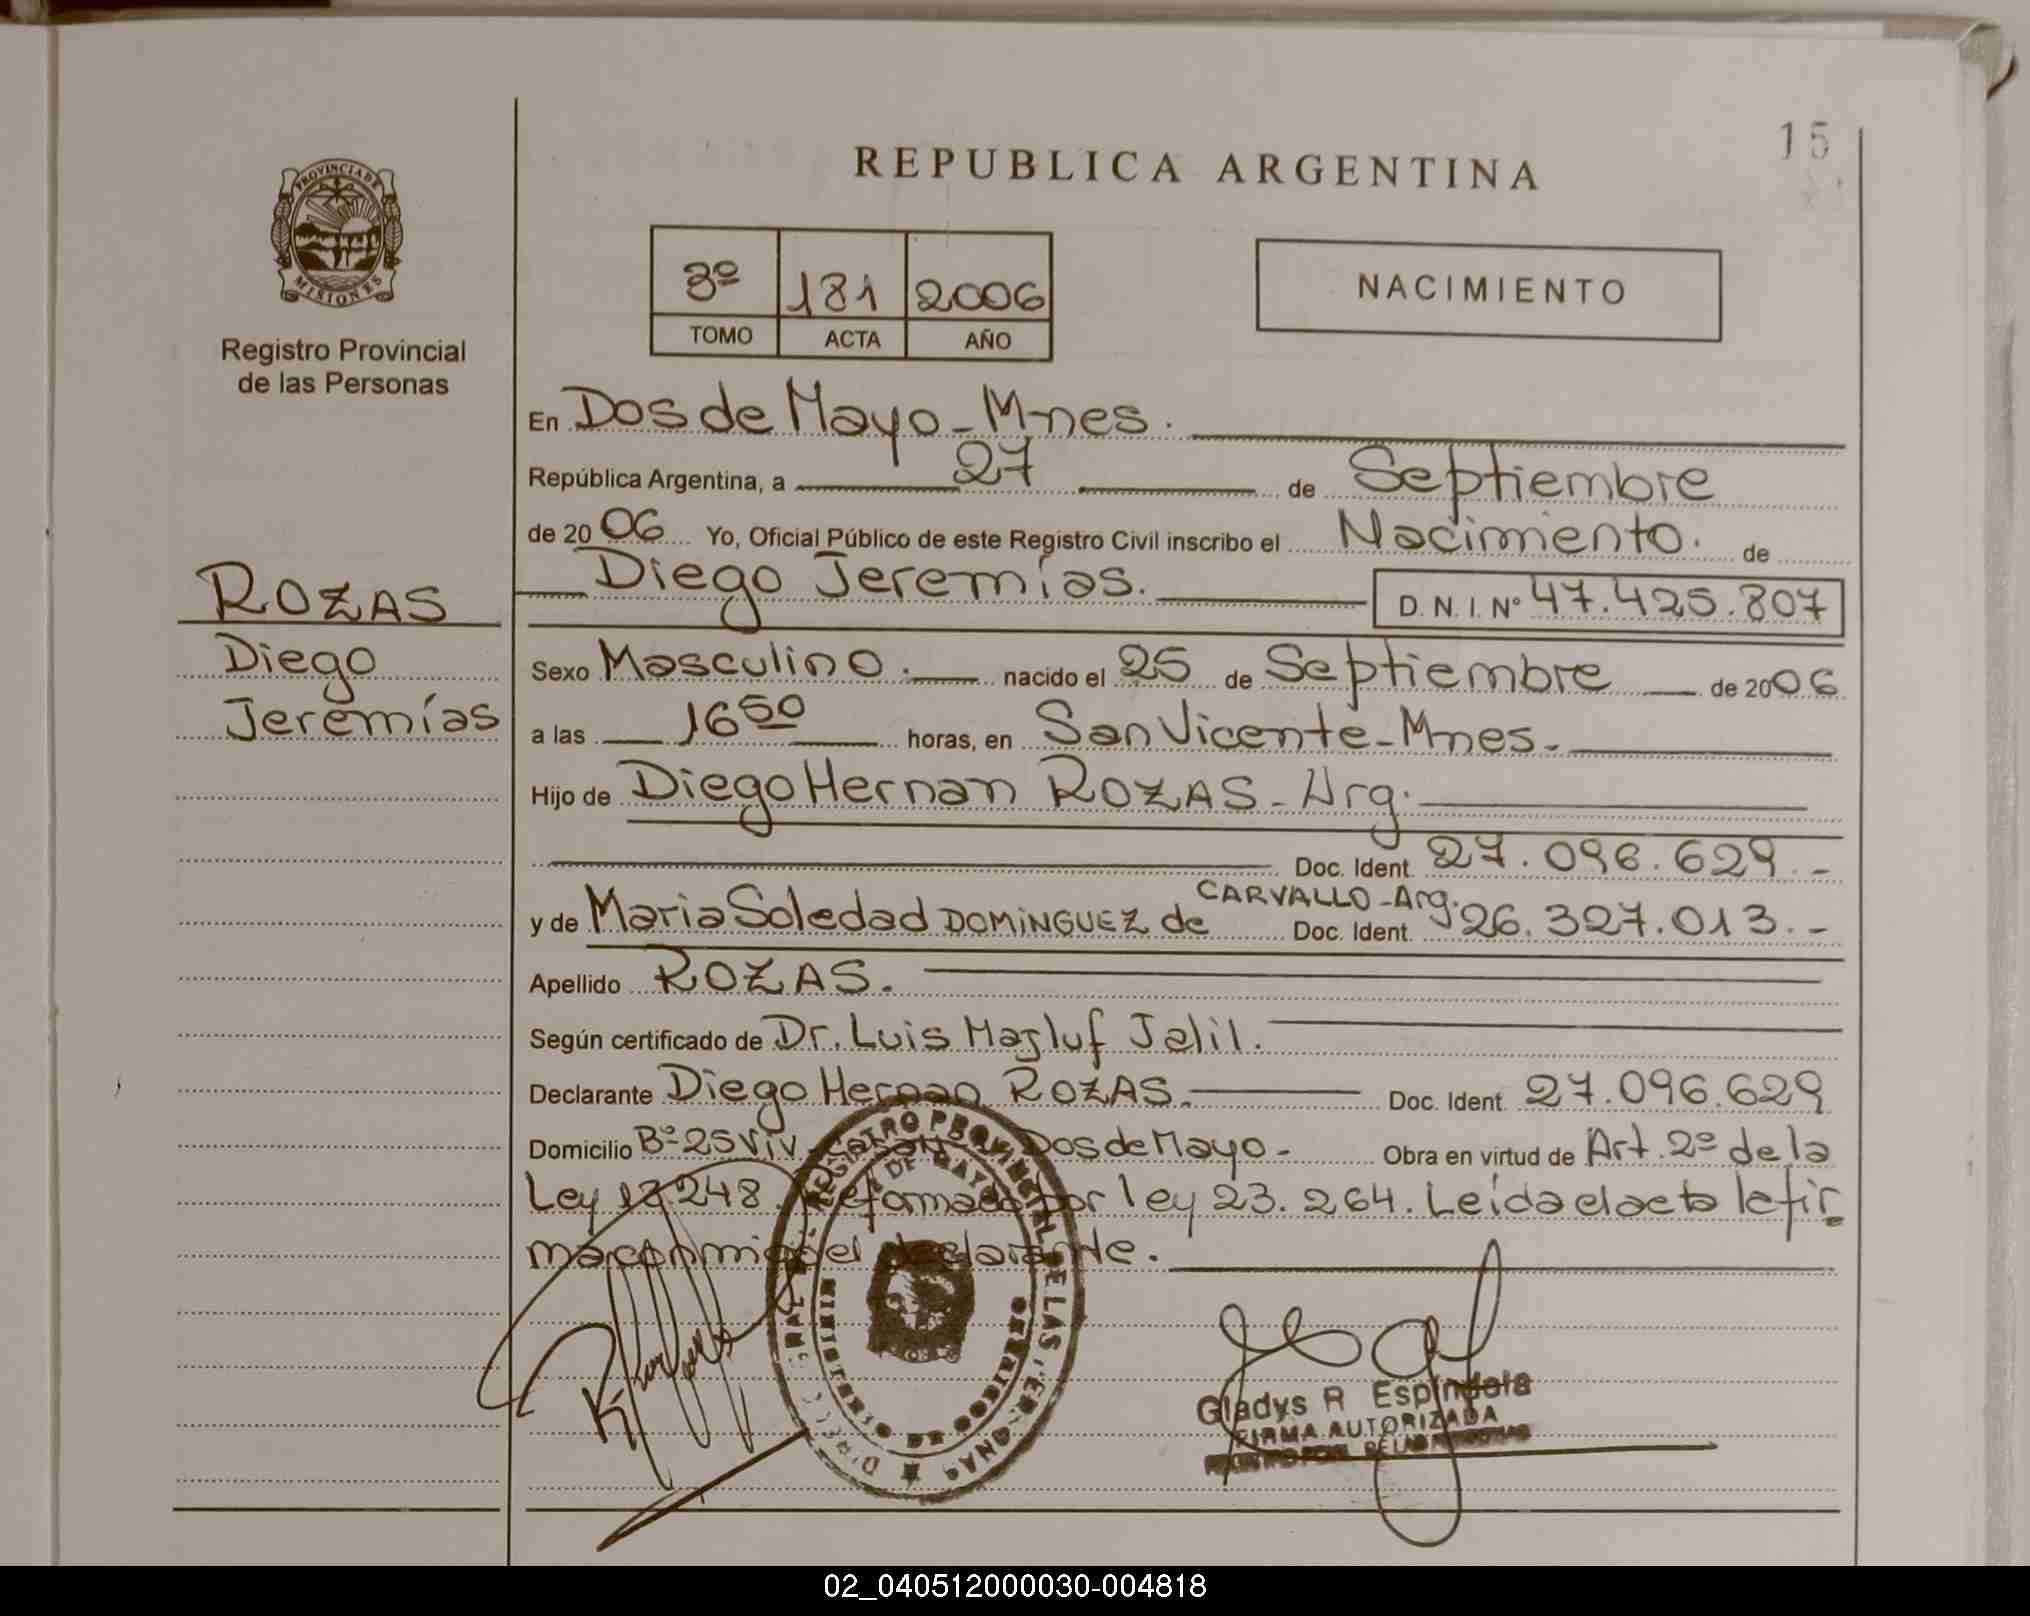 15
REPUBLICA ARGENTINA
PROVINCIA DE
MISIONES
Registro Provincial
de las Personas
3º 181 2006
TOMO ACTA AÑO
NACIMIENTO
En Dos de Mayo - Mnes.
República Argentina, a 27 de Septiembre
de 2006 Yo, Oficial Público de este Registro Civil inscribo el Nacimiento. de
Diego Jeremías. D. N. I. Nº 47.425.807
ROZAS
Diego
Jeremías
Sexo Masculino. nacido el 25 de Septiembre de 2006
a las 16 50 horas, en San Vicente - Mnes.
Hijo de Diego Hernan ROZAS - Arg.
Doc. Ident. 27.096.629.-
CARVALLO - Arg.
y de Maria Soledad DOMINGUEZ de Doc. Ident. 26.327.013.-
Apellido ROZAS.
Según certificado de Dr. Luis Masluf Jalil.
Declarante Diego Hernan ROZAS. Doc. Ident. 27.096.629
Domicilio Bº 25 Viv. Dos de Mayo - Obra en virtud de Art. 2º de la
Ley 18.248. Reformado por ley 23.264. Leída el acta la fir
ma conmigo el declarante.
REGISTRO PROVINCIAL DE LAS PERSONAS
DE MAYO
MINISTERIO DE GOBIERNO
Gladys R Espíndola
FIRMA AUTORIZADA
02_040512000030-004818